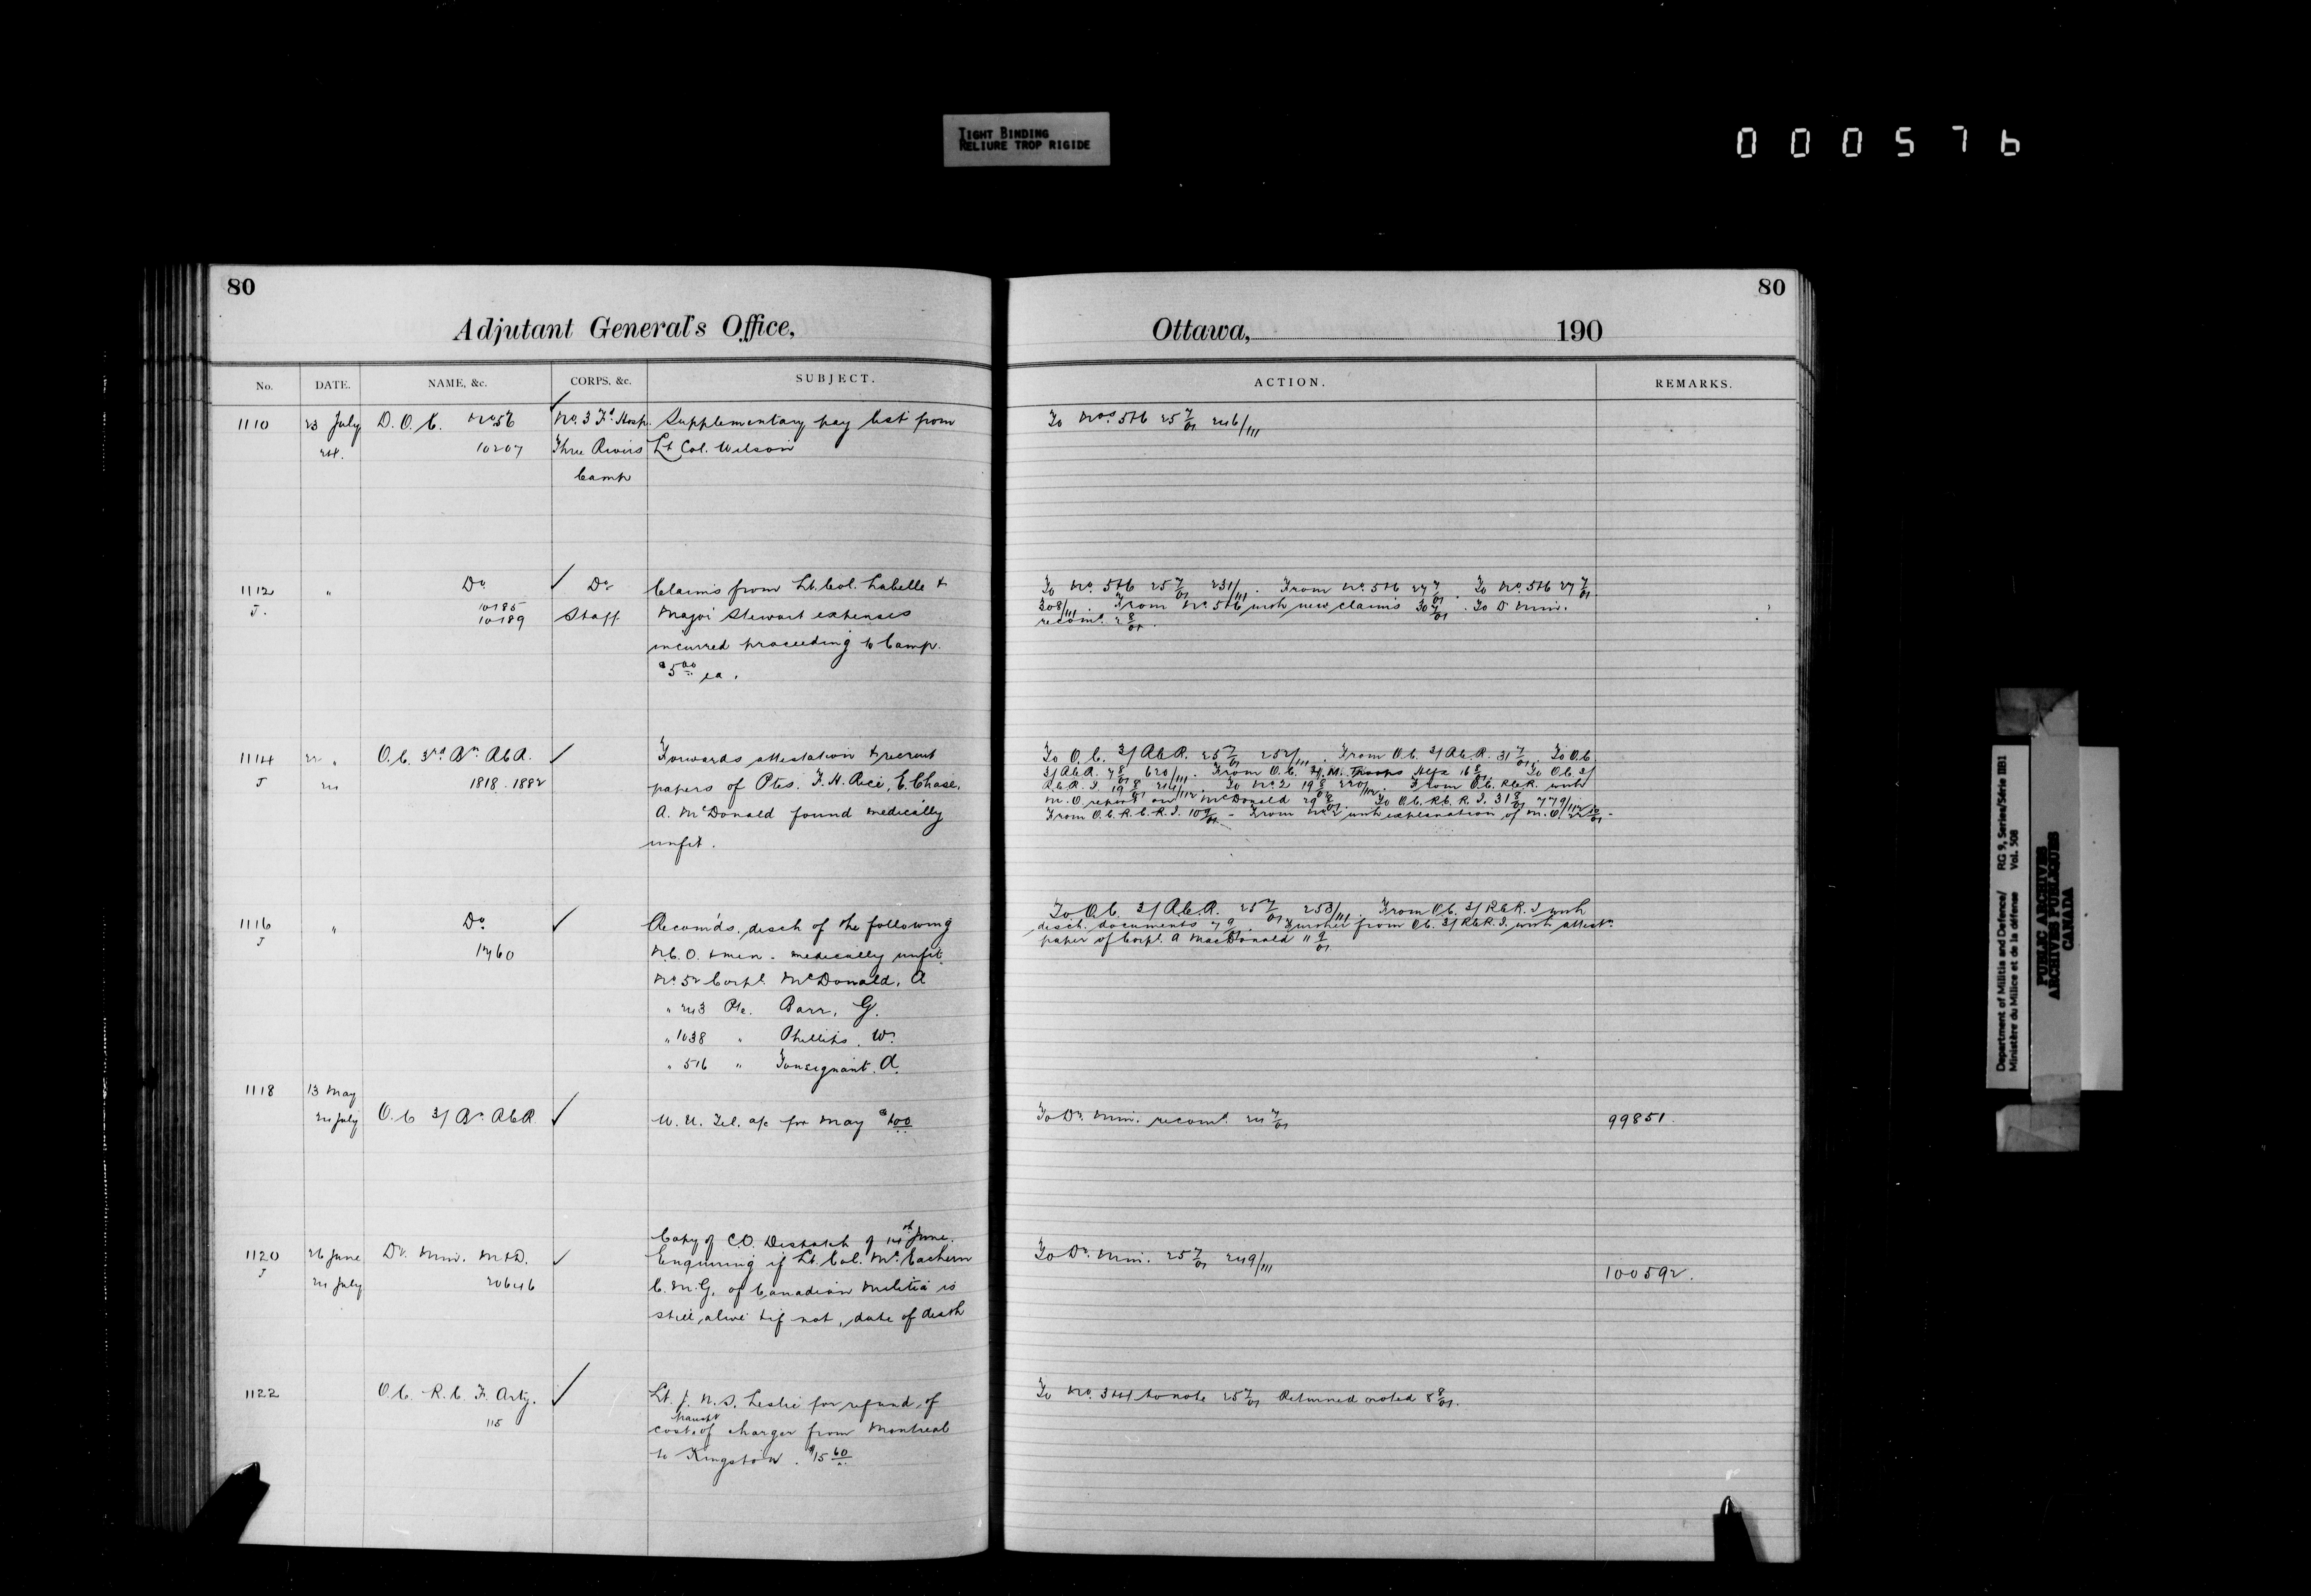 TIGHT BINDING
RELIURE TROP RIGIDE
000576
80
Adjutant General's Office,
No. DATE. NAME, &c. CORPS, &c. SUBJECT.
1110 23 July D.O.C. No 5&6 No. 3 Fd Hosp. Supplementary pay list from
24. 10207 Three Rivers Lt Col. Wilson
Camp
1112 " Do Do Claims from Lt. Col. Labelle &
J. 10185 Staff Major Stewart expenses
10189
incurred proceeding to Camp.
$5.00 ea.
1114 22 " O.C. 3rd Bn. R.C.R. Forwards attestation & recruit
J 24 1818. 1882 papers of Ptes. F.H. Rice, E. Chase,
A. McDonald found medically
unfit.
1116 " Do Recom'ds. disch of the following
J 1760 N.C.O. & men - medically unfit
No. 52 Corpl. McDonald, A
" 243 Pte. Barr, G.
" 1038 " Phillips, W.
" 516 " A.
1118 13 May
24 July O.C. 3/ Bn. R.C.R. W.U. Tel. a/c for May
Copy of C.O. Despatch of 14th June.
1120 26 June Dr. Min. M&D. Enquiring if Lt. Col. McEachern
J 24 July 20646 C.M.G. of Canadian Militia is
still alive & if not, date of death
1122 O.C. R.C. F. Arty. Lt. J.N.S. Leslie for refund of
115 cost of transpt charger from Montreal
to Kingston. $15.60
80
Ottawa, 190
ACTION. REMARKS.
To Nos. 5&6 25 7/01 246/111
To No. 5&6 25 7/01 231/111. From No. 5&6 27 7/01. To No. 5&6 27 7/01
308/111. From No. 5&6 with new claims 30 7/01. To D. Min.
recomd. 2 8/01.
To O.C. 3/R.C.R. 25 7/01 252/111. From O.C. 3/R.C.R. 31 7/01. To O.C.
3/R.C.R. 7 8/01 620/111. From O.C. H.M. Troops Hfx 16 8/01. To O.C. 3/
R.C.R.I. 19 8/01 214/112. To No. 2 19 8/01 220/112. From O.C. R.C.R. with
M.O. report on McDonald 29 8/01. To O.C. R.C.R.I. 31 8/01 779/112
From O.C. R.C.R.I. 10 9/01 - From No. 2 with explanation of M.O.
To O.C. 3/R.C.R. 25 7/01 253/111. From O.C. 3/R.C.R.I. with
disch. documents 7 9/01. Further from O.C. 3/R.C.R.I. with attestn
paper of Corpl. A MacDonald 11 9/01
To Dr. Min. recomd. 24 7/01 99851.
To Dr. Min. 25 7/01 249/111
100592.
To No. 3441 to note 25 7/01 Returned noted 8 8/01.
Department of Militia and Defence/ RG 9, Series/Série IIB1
Ministère du Milice et de la défense Vol. 508
PUBLIC ARCHIVES
ARCHIVES PUBLIQUES
CANADA